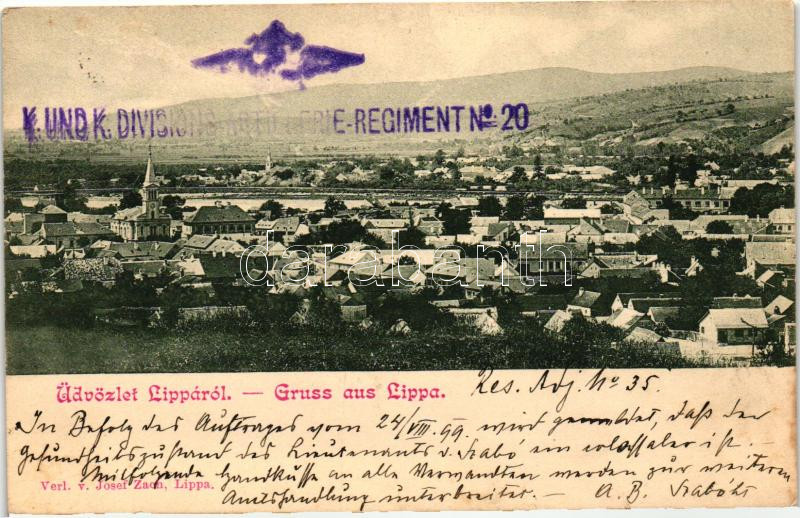 K. UND K. DIVISIONS-ARTILLERIE-REGIMENT No 20
darabanth
Üdvözlet Lippáról. — Gruss aus Lippa.
Res. Adj. No 35.
In Befolg des Auftrages vom 24/VIII. 99 wird gemeldet, daß der
Gesundheitszustand des Lieutenants v. Szabó ein colossaler ist. —
Mitfolgende Handküsse an alle Verwandten werden zur weiteren
Verl. v. Josef Zach, Lippa.
Amtshandlung unterbreitet. — A. B. Szabó